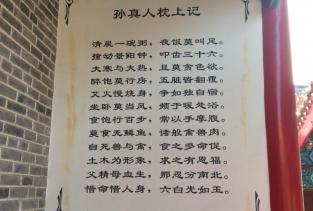 孙真人枕上记
清晨一碗粥，夜饭莫叫足。
撞动景阳钟，叩齿三十六。
大寒与大热，且莫贪色欲。
醉饱莫行房，五脏皆翻覆。
艾火慢烧身，争如独自宿。
坐卧莫当风，频于暖处浴。
食饱行百步，常以手摩腹。
莫食无鳞鱼，诸般禽兽肉。
自死禽与兽，食之多命促。
土木为形象，求之有恩福。
父精母血生，那忍分南北。
惜命惜人身，六白光如玉。